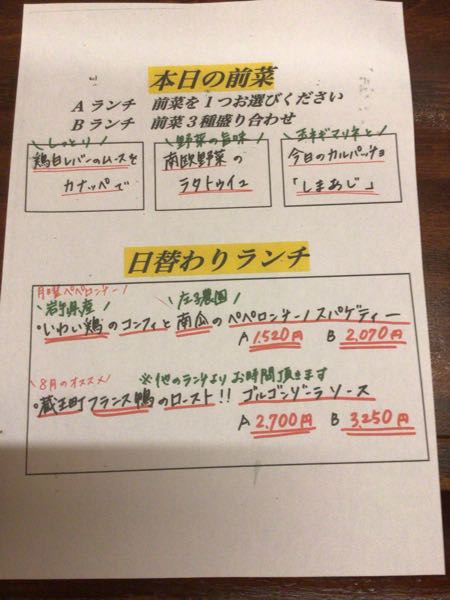 本日の前菜
Aランチ 前菜を1つお選びください
Bランチ 前菜3種盛り合わせ
\しっとり/
鶏白レバーのムースを
カナッペで
\野菜の旨味/
南欧野菜の
ラタトゥイユ
\玉ネギマリネと/
今日のカルパッチョ
「しまあじ」
日替わりランチ
月曜ペペロンチーノ
\岩手県産/
\庄子農園/
・いわい鶏のコンフィと南瓜のペペロンチーノスパゲティー
A 1,520円 B 2,070円
\8月のオススメ/
※他のランチよりお時間頂きます
・蔵王町フランス鴨のロースト!! ゴルゴンゾーラソース
A 2,700円 B 3,250円